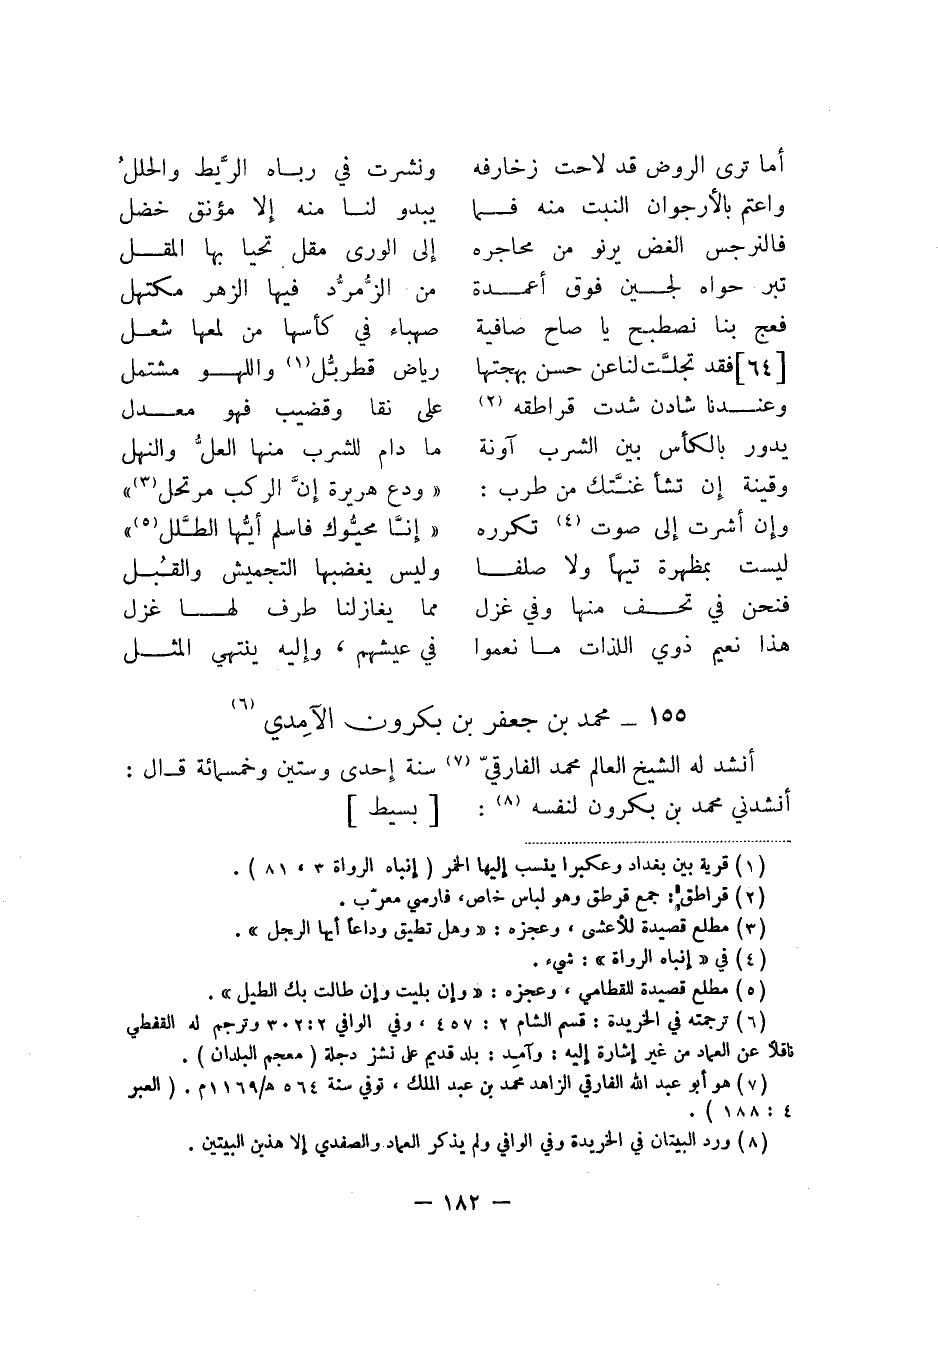 أما ترى الروض قد لاحت زخارفه ونشرت في ربـاه الرَّيط والحللُ
واعتم بالأرجوان النبت منه فـما يبدو لنـا منه إلا مؤنق خضل
فالنرجس الغض يرنو من محاجره إلى الورى مقل تحيا بها المقـل
تبر حواه لجـين فوق أعمـدة من الزُّمرُّد فيها الزهر مكتهل
فعج بنا نصطبح يا صاح صافية صهباء في كأسها من لمعها شعـل
[٦٤] فقد تجلـَّت لنا عن حسن بهجتها رياض قطربُّل (١) واللهـو مشتمل
وعنـدنا شادن شدت قراطقه (٢) على نقا وقضيب فهو معـدل
يدور بالكأس بين الشرب آونة ما دام للشرب منها العلُّ والنهل
وقينة إن تشأ غنـَّتك من طرب : « ودع هريرة إنَّ الركب مرتحل (٣) »
وإن أشرت إلى صوت (٤) تكرره « إنـَّا محيُّوك فاسلم أيُّها الطَّلل (٥) »
ليست بمظهرة تيهاً ولا صلفـا وليس يغضبها التجميش والقُبـل
فنحن في تحـف منها وفي غزل مما يغازلنا طرف لهـا غزل
هذا نعيم ذوي اللذات مـا نعموا في عيشهم ، وإليه ينتهي المثـل
١٥٥ ـ محمد بن جعفر بن بكرون الآمِدي (٦)
أنشد له الشيخ العالم محمد الفارقيّ (٧) سنة إحدى وستين وخمسمائة قـال :
أنشدني محمد بن بكرون لنفسه (٨) : [ بسيط ]
(١) قرية بين بغداد وعكبرا ينسب إليها الخمر ( إنباه الرواة ٣ ، ٨١ ) .
(٢) قراطق : جمع قرطق وهو لباس خاص، فارسي معرّب .
(٣) مطلع قصيدة للأعشى ، وعجزه : « وهل تطيق وداعاً أيها الرجل » .
(٤) في « إنباه الرواة » : شيء .
(٥) مطلع قصيدة للقطامي ، وعجزه : « وإن بليت وإن طالت بك الطيل » .
(٦) ترجمته في الخريدة : قسم الشام ٢ : ٤٥٧ ، وفي الوافي ٢ : ٣٠٢ وترجم له القفطي
ناقلاً عن العماد من غير إشارة إليه : وآمِد : بلد قديم على نشز دجلة ( معجم البلدان ) .
(٧) هو أبو عبد الله الفارقي الزاهد محمد بن عبد الملك ، توفي سنة ٥٦٤ هـ/١١٦٩م . ( العبر
٤ : ١٨٨ ) .
(٨) ورد البيتان في الخريدة وفي الوافي ولم يذكر العماد والصفدي إلا هذين البيتين .
— ١٨٢ —